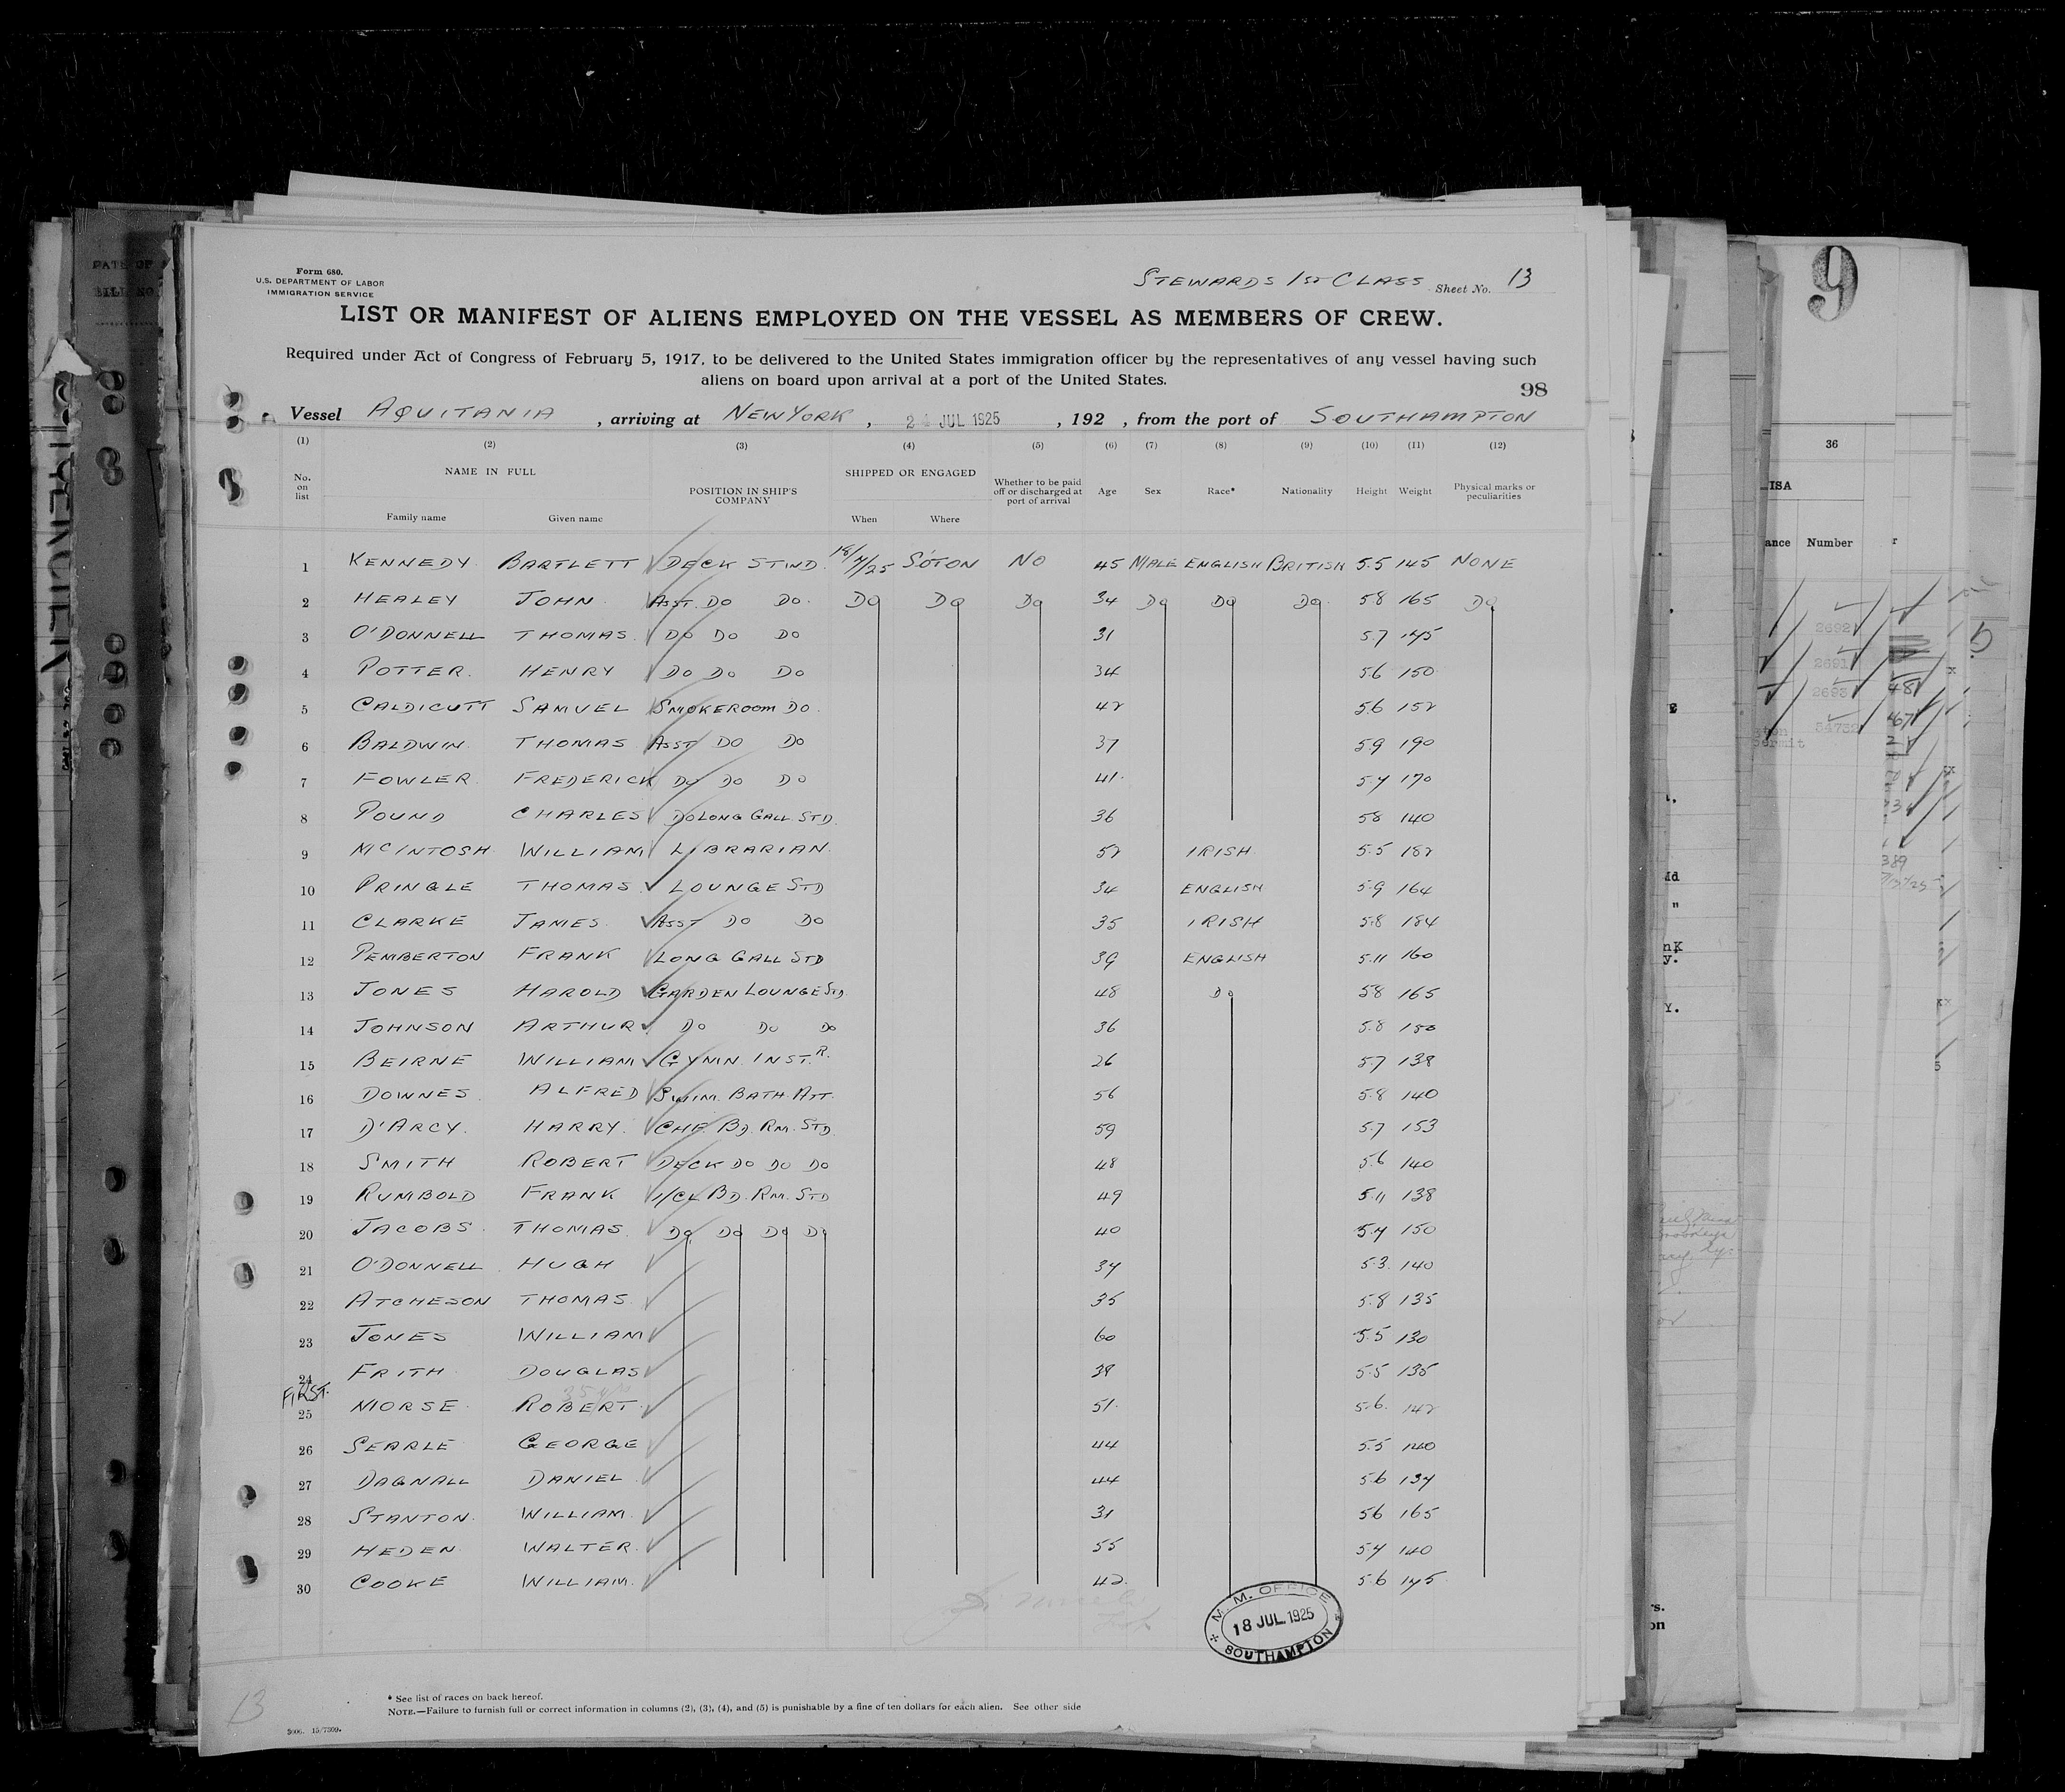 Form 680.
U.S. DEPARTMENT OF LABOR
IMMIGRATION SERVICE
STEWARDS 1ST CLASS Sheet No. 13
LIST OR MANIFEST OF ALIENS EMPLOYED ON THE VESSEL AS MEMBERS OF CREW.
Required under Act of Congress of February 5, 1917, to be delivered to the United States immigration officer by the representatives of any vessel having such
aliens on board upon arrival at a port of the United States.
98
Vessel AQUITANIA , arriving at NEW YORK , 24 JUL 1925 , 192 , from the port of SOUTHAMPTON
(1) (2) (3) (4) (5) (6) (7) (8) (9) (10) (11) (12)
No. on list NAME IN FULL POSITION IN SHIP'S COMPANY SHIPPED OR ENGAGED Whether to be paid off or discharged at port of arrival Age Sex Race* Nationality Height Weight Physical marks or peculiarities
Family name Given name When Where
1 KENNEDY BARTLETT DECK STWD. 18/7/25 S'OTON NO 45 MALE ENGLISH BRITISH 5.5 145 NONE
2 HEALEY JOHN ASST. DO DO. DO DO DO 34 DO DO DO. 5.8 165 DO
3 O'DONNELL THOMAS. DO DO DO 31 5.7 145
4 POTTER. HENRY DO DO DO 34 5.6 150
5 CALDICUTT SAMUEL SMOKEROOM DO. 42 5.6 152
6 BALDWIN THOMAS ASST DO DO 37 5.9 190
7 FOWLER. FREDERICK DO DO DO 41. 5.4 170
8 POUND CHARLES DO LONG GALL. STD. 36 5.8 140
9 MCINTOSH WILLIAM LIBRARIAN. 52 IRISH. 5.5 182
10 PRINGLE THOMAS. LOUNGE STD 34 ENGLISH 5.9 164
11 CLARKE JAMES. ASST DO DO 35 IRISH 5.8 184
12 PEMBERTON FRANK LONG GALL STD 39 ENGLISH 5.11 160
13 JONES HAROLD GARDEN LOUNGE STD. 48 DO 5.8 165
14 JOHNSON ARTHUR DO DO DO 36 5.8
15 BEIRNE WILLIAM GYMN. INSTR. 26 5.7 138
16 DOWNES. ALFRED SWIM. BATH. ATT. 56 5.8 140
17 D'ARCY. HARRY. CHF BD. RM. STD. 59 5.7 153
18 SMITH ROBERT DECK DO DO DO 48 5.6 140
19 RUMBOLD FRANK 1/CL BD. RM. STD 49 5.11 138
20 JACOBS. THOMAS. DO DO DO DO 40 5.4 150
21 O'DONNELL HUGH 34 5.3. 140
22 ATCHESON THOMAS. 35 5.8 135
23 JONES WILLIAM 60 5.5 130
24 FRITH DOUGLAS 38 5.5 135
FIRST.
25 MORSE. ROBERT. 51. 5.6. 142
26 SEARLE GEORGE 44 5.5 140
27 DAGNALL DANIEL 44 5.6 134
28 STANTON. WILLIAM. 31 5.6 165
29 HEDEN WALTER. 55 5.4 140
30 COOKE WILLIAM. 42. 5.6 145.
M. M. OFFICE
18 JUL. 1925
SOUTHAMPTON
* See list of races on back hereof.
NOTE.—Failure to furnish full or correct information in columns (2), (3), (4), and (5) is punishable by a fine of ten dollars for each alien. See other side
13
15/7309.
9
36
ISA
ance Number
2692
2691
2693